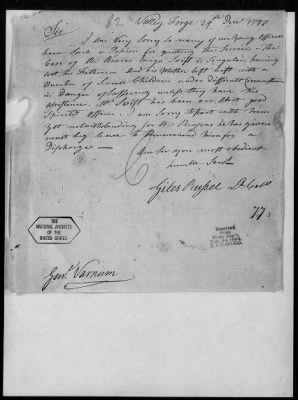 82 Valley Forge 29th Decr 1777
Sir
I am Very Sorry so many of our Young Officers
have Such a for quitting the Service - The
Case of the Bearer Ensign Swift is Singular, having
lost his Father and his Mother left with a
Number of Small Children under Difficult
in Danger of Suffering unless they have his
assistance. Mr Swift has been an Able good
Spirited Officer. I am Sorry to part with him
Yet notwithstanding for the Reasons he has given
must beg leave to Recommend him for a
Discharge
Am Sir your most obedient
humble Servt
Giles Russel Lt Colo
77
THE
NATIONAL ARCHIVES
OF THE
UNITED STATES
Genl Varnum